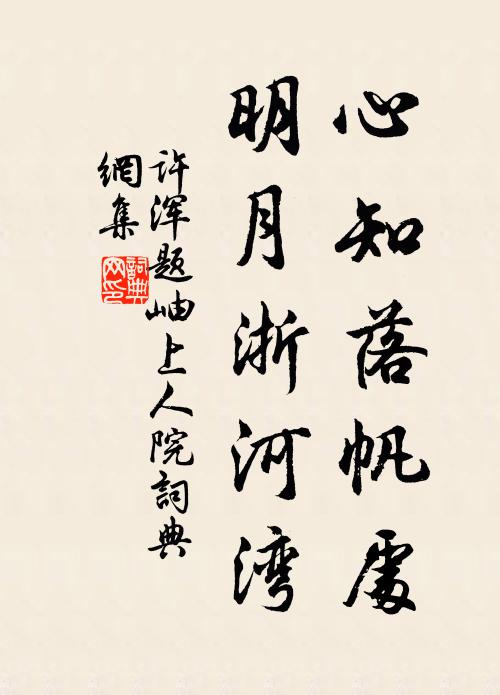 心知落帆處
明月浙河湾
许浑题岫上人院詞典
網集
詞典网印